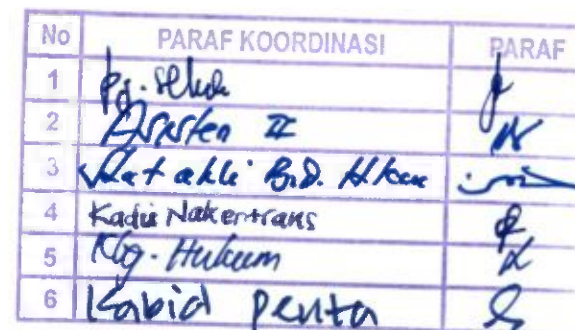 No PARAF KOORDINASI PARAF
1 Pj. Sekda
2 Asisten II
3 Staf ahli Bid.
4 Kadis Nakertrans
5 Kbg. Hukum
6 Kabid Penta